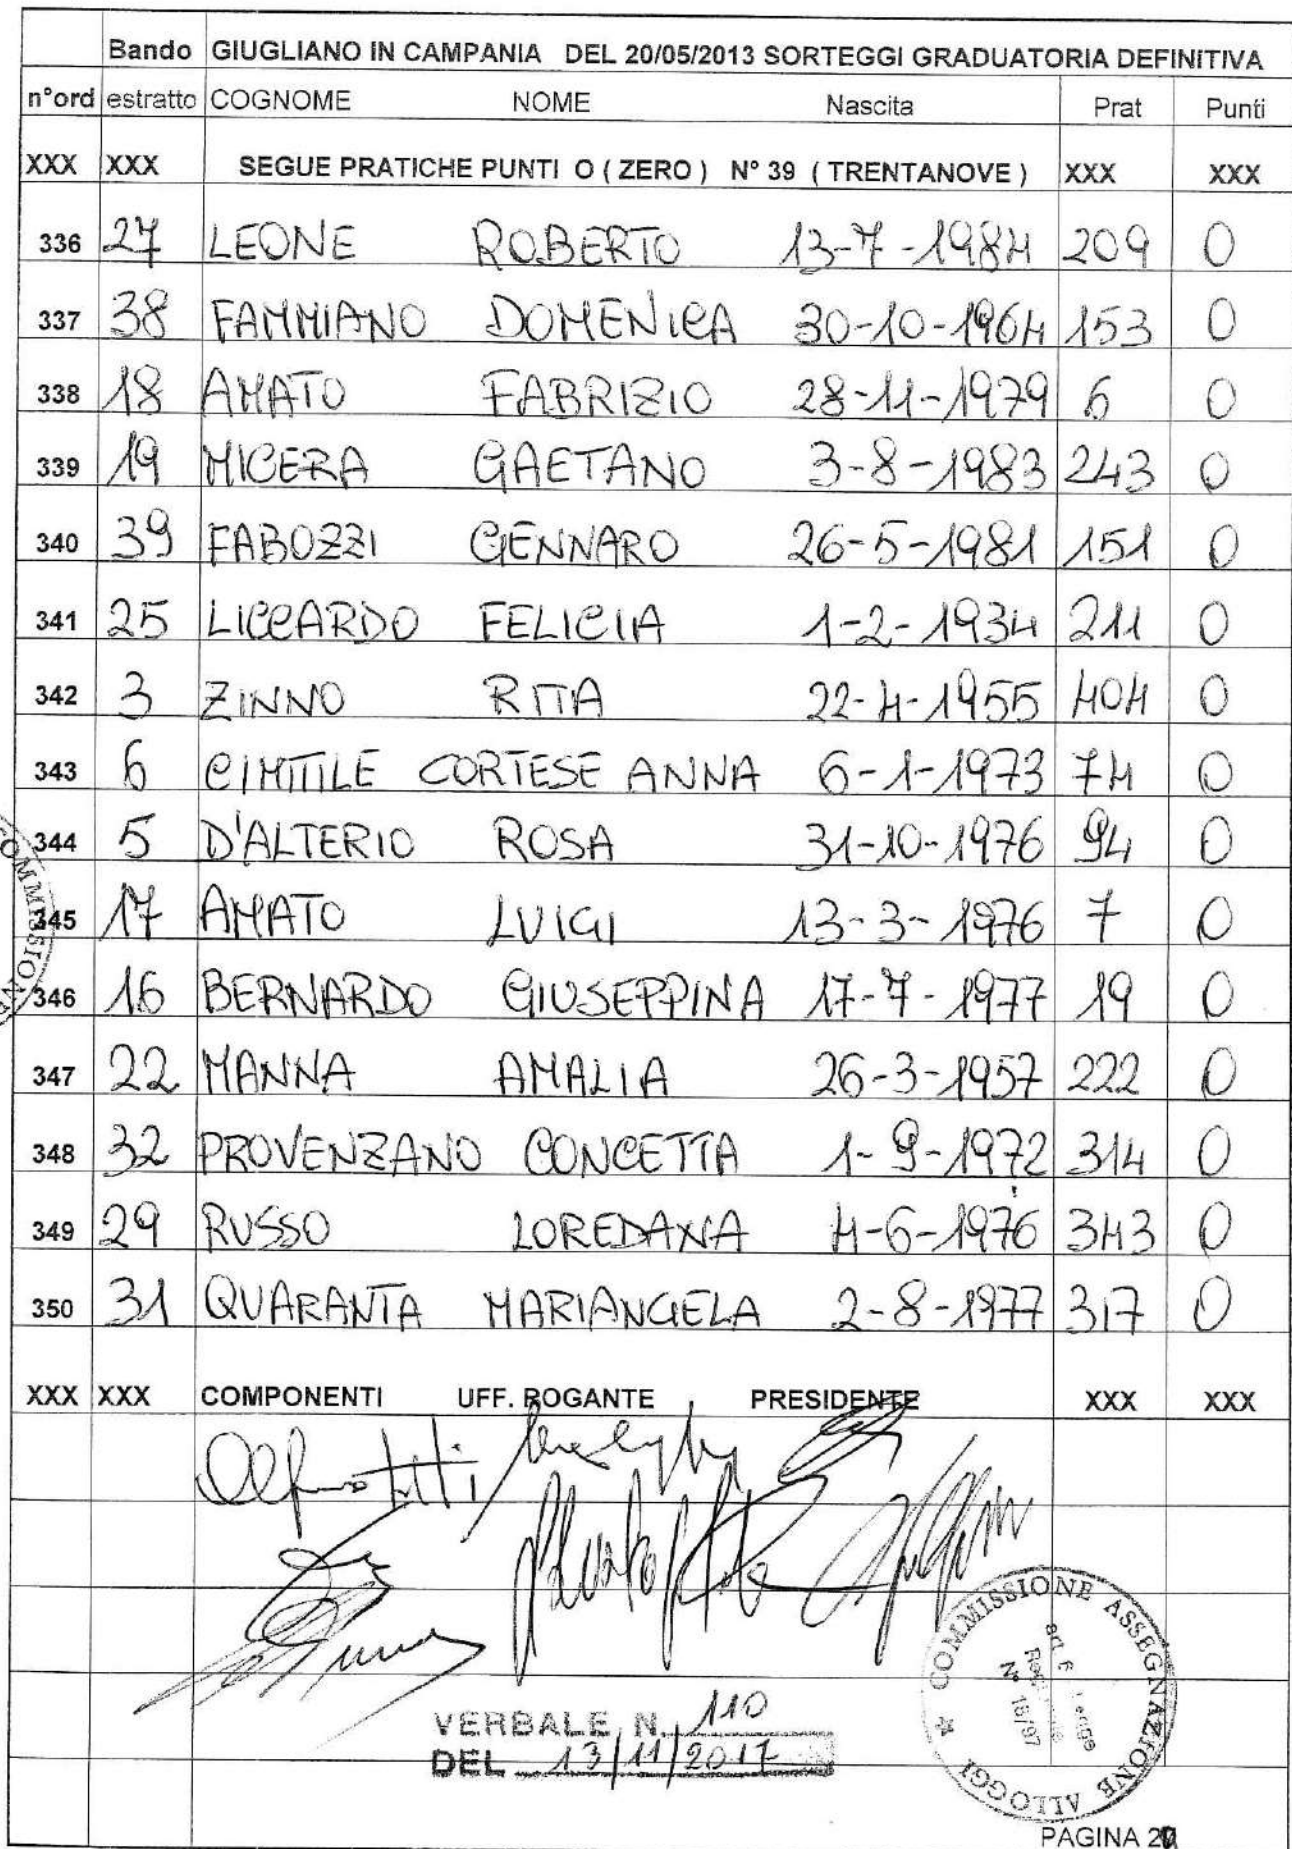 Bando GIUGLIANO IN CAMPANIA DEL 20/05/2013 SORTEGGI GRADUATORIA DEFINITIVA
n°ord estratto COGNOME NOME Nascita Prat Punti
XXX XXX SEGUE PRATICHE PUNTI O ( ZERO ) N° 39 ( TRENTANOVE ) XXX XXX
336 27 LEONE ROBERTO 13-7-1984 209 0
337 38 FAMMIANO DOMENICA 30-10-1964 153 0
338 18 AMATO FABRIZIO 28-11-1979 6 0
339 19 MICERA GAETANO 3-8-1983 243 0
340 39 FABOZZI GENNARO 26-5-1981 151 0
341 25 LICCARDO FELICIA 1-2-1934 211 0
342 3 ZINNO RITA 22-4-1955 404 0
343 6 CIMITILE CORTESE ANNA 6-1-1973 74 0
344 5 D'ALTERIO ROSA 31-10-1976 94 0
345 17 AMATO LUIGI 13-3-1976 7 0
346 16 BERNARDO GIUSEPPINA 17-7-1977 19 0
347 22 MANNA AMALIA 26-3-1957 222 0
348 32 PROVENZANO CONCETTA 1-9-1972 314 0
349 29 RUSSO LOREDANA 4-6-1976 343 0
350 31 QUARANTA MARIANGELA 2-8-1977 317 0
COMMISSIONE
XXX XXX COMPONENTI UFF. ROGANTE PRESIDENTE XXX XXX
COMMISSIONE ASSEGNAZIONE ALLOGGI
art. 6 Legge
N° 18/97
VERBALE N. 110
DEL 13/11/2017
PAGINA